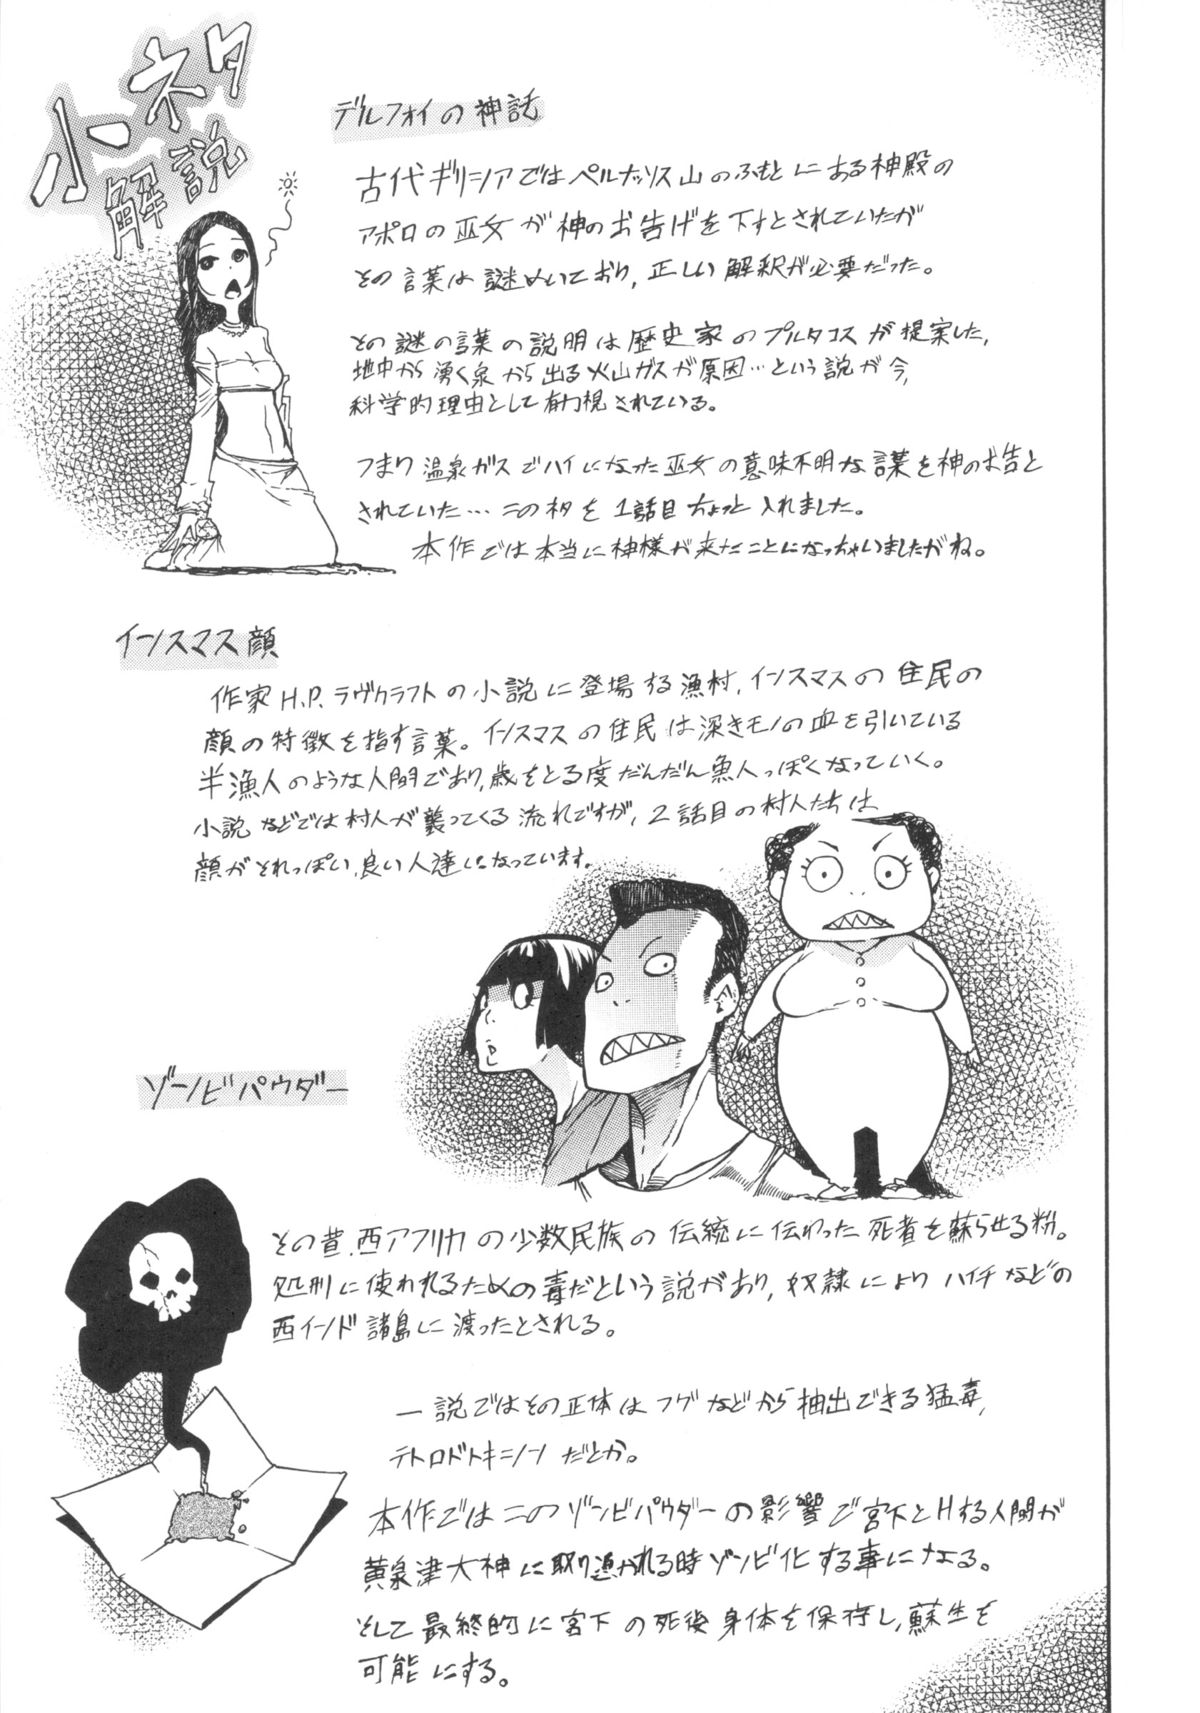 小ネタ
解説
デルフォイの神話
古代ギリシアではペルナッソス山のふもとにある神殿の
アポロの巫女が神のお告げを下すとされていたが
その言葉は謎めいており,正しい解釈が必要だった。
その謎の言葉の説明は歴史家のプルタコスが提案した,
地中から湧く泉から出る火山ガスが原因…という説が今,
科学的理由として有力視されている。
つまり温泉ガスでハイになった巫女の意味不明な言葉を神のお告と
されていた…このネタを1話目ちょっと入れました。
本作では本当に神様が来たことになっちゃいましたがね。
インスマス顔
作家H.P.ラヴクラフトの小説に登場する漁村,インスマスの住民の
顔の特徴を指す言葉。インスマスの住民は深きモノの血を引いている
半漁人のような人間であり,歳をとる度だんだん魚人っぽくなっていく。
小説などでは村人が襲ってくる流れですが,2話目の村人たちは
顔がそれっぽい,良い人達になっています。
ゾンビパウダー
その昔,西アフリカの少数民族の伝統に伝わった死者を蘇らせる粉。
処刑に使われるための毒だという説があり,奴隷によりハイチなどの
西インド諸島に渡ったとされる。
一説ではその正体はフグなどから抽出できる猛毒,
テトロドトキシンだとか。
本作ではこのゾンビパウダーの影響で宮下とHする人間が
黄泉津大神に取り憑かれる時ゾンビ化する事になる。
そして最終的に宮下の死後身体を保存し,蘇生を
可能にする。